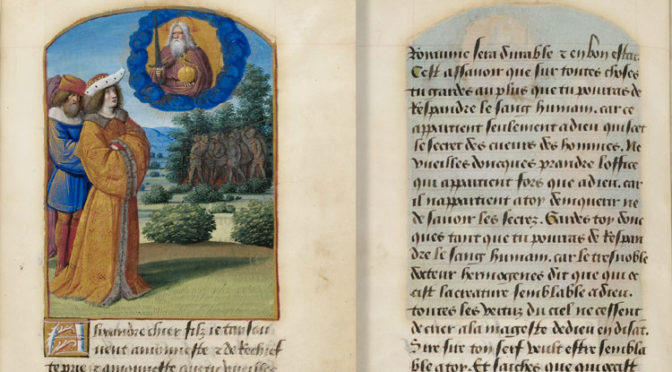 Alixandre chier filz ie tay sou
uent amonneste & de rechief
te prie & amonneste que tu vueilles
Royaume sera durable & en bon estat.
Cest assauoir que sur toutes choses
tu gardes au plus que tu pourras de
Respandre le sang humain. car ce
appartient seulement a dieu qui scet
le secret des cueurs des hommes. Ne
vueilles doncques prandre loffice
qui appartient fors que a dieu. car
il nappartient a toy denquerir ne
de sauoir les secrez. Gardes toy donc
ques tant que tu pourras de Respan
dre le sang humain. car le tresnoble
docteur hermogenes dit que qui oc
cist la creature semblable a dieu.
toutes les vertuz du ciel ne cessent
de crier a la mageste de dieu en disāt.
Sire sire ton serf veult estre sembla
ble a toy. Et saiches que qui occist